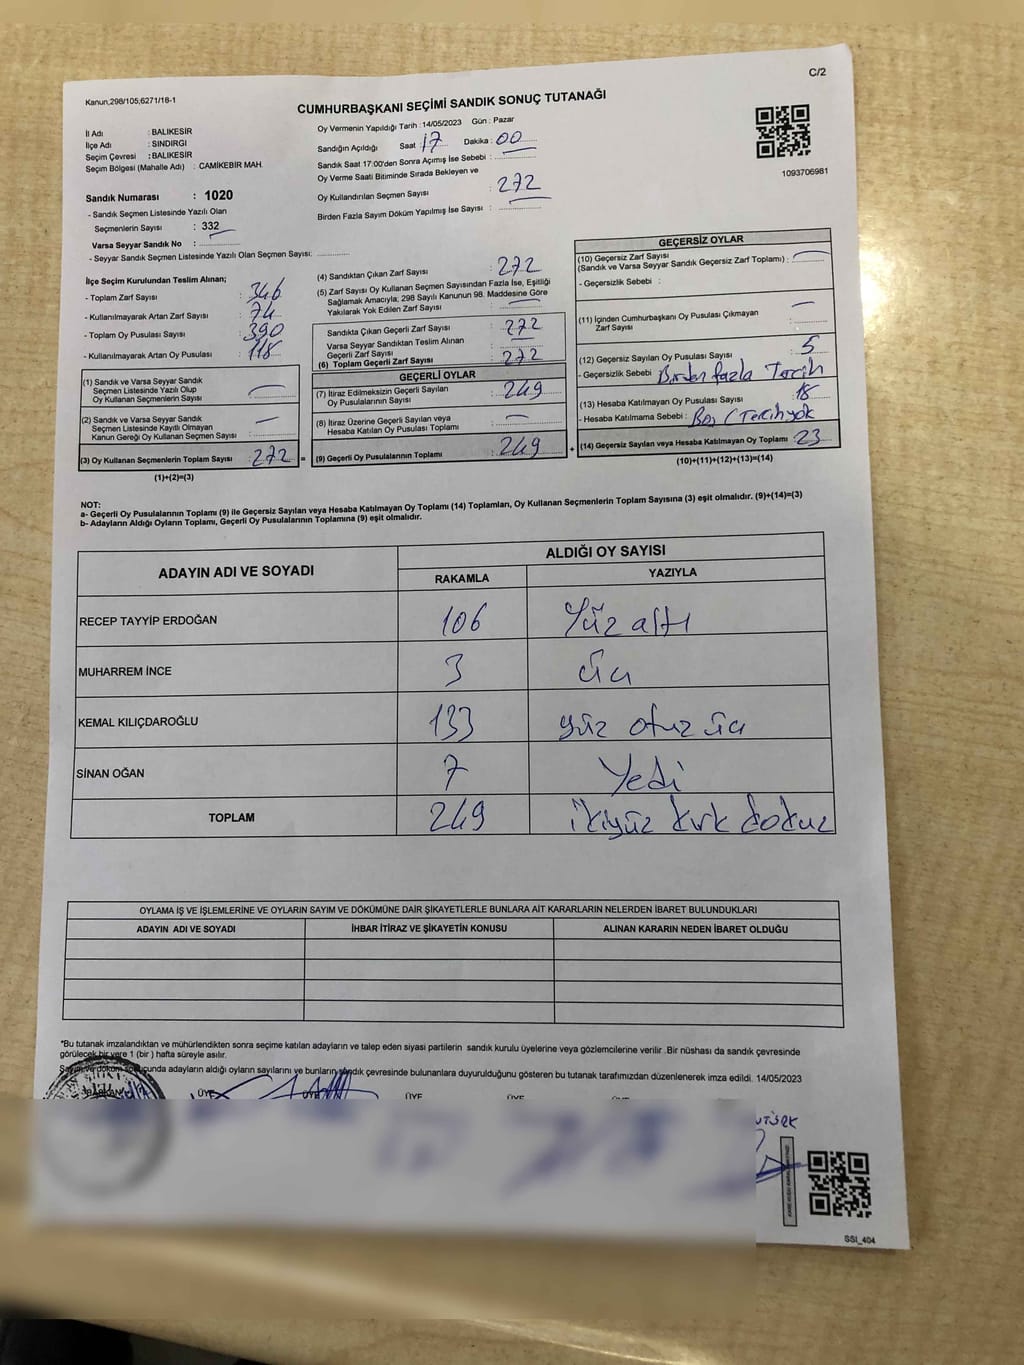 C/2
Kanun,298/105,6271/18-1
CUMHURBAŞKANI SEÇİMİ SANDIK SONUÇ TUTANAĞI
İl Adı : BALIKESİR
İlçe Adı : SINDIRGI
Seçim Çevresi : BALIKESİR
Seçim Bölgesi (Mahalle Adı) : CAMİKEBİR MAH.
Sandık Numarası : 1020
- Sandık Seçmen Listesinde Yazılı Olan
Seçmenlerin Sayısı : 332
Varsa Seyyar Sandık No :
- Seyyar Sandık Seçmen Listesinde Yazılı Olan Seçmen Sayısı:
Oy Vermenin Yapıldığı Tarih :14/05/2023 Gün : Pazar
Sandığın Açıldığı Saat 17 Dakika: 00
Sandık Saat 17:00'den Sonra Açımış İse Sebebi :
Oy Verme Saati Bitiminde Sırada Bekleyen ve
Oy Kullandırılan Seçmen Sayısı : 272
Birden Fazla Sayım Döküm Yapılmış İse Sayısı :
1093706981
İlçe Seçim Kurulundan Teslim Alınan;
- Toplam Zarf Sayısı : 346
- Kullanılmayarak Artan Zarf Sayısı : 74
- Toplam Oy Pusulası Sayısı : 390
- Kullanılmayarak Artan Oy Pusulası : 118
(1) Sandık ve Varsa Seyyar Sandık
Seçmen Listesinde Yazılı Olup
Oy Kullanan Seçmenlerin Sayısı :
(2) Sandık ve Varsa Seyyar Sandık
Seçmen Listesinde Kayıtlı Olmayan
Kanun Gereği Oy Kullanan Seçmen Sayısı :
(3) Oy Kullanan Seçmenlerin Toplam Sayısı : 272 =
(1)+(2)=(3)
(4) Sandıktan Çıkan Zarf Sayısı : 272
(5) Zarf Sayısı Oy Kullanan Seçmen Sayısından Fazla İse, Eşitliği
Sağlamak Amacıyla; 298 Sayılı Kanunun 98. Maddesine Göre
Yakılarak Yok Edilen Zarf Sayısı :
Sandıkta Çıkan Geçerli Zarf Sayısı : 272
Varsa Seyyar Sandıktan Teslim Alınan
Geçerli Zarf Sayısı
(6) Toplam Geçerli Zarf Sayısı : 272
GEÇERLİ OYLAR
(7) İtiraz Edilmeksizin Geçerli Sayılan
Oy Pusulalarının Sayısı : 249
(8) İtiraz Üzerine Geçerli Sayılan veya
Hesaba Katılan Oy Pusulası Toplamı :
(9) Geçerli Oy Pusulalarının Toplamı : 249 +
GEÇERSİZ OYLAR
(10) Geçersiz Zarf Sayısı
(Sandık ve Varsa Seyyar Sandık Geçersiz Zarf Toplamı) :
- Geçersizlik Sebebi :
(11) İçinden Cumhurbaşkanı Oy Pusulası Çıkmayan
Zarf Sayısı
(12) Geçersiz Sayılan Oy Pusulası Sayısı : 5
- Geçersizlik Sebebi : Birden fazla Tercih
(13) Hesaba Katılmayan Oy Pusulası Sayısı : 18
- Hesaba Katılmama Sebebi : Boş (Tercih yok
(14) Geçersiz Sayılan veya Hesaba Katılmayan Oy Toplamı : 23
(10)+(11)+(12)+(13)=(14)
NOT:
a- Geçerli Oy Pusulalarının Toplamı (9) ile Geçersiz Sayılan veya Hesaba Katılmayan Oy Toplamı (14) Toplamları, Oy Kullanan Seçmenlerin Toplam Sayısına (3) eşit olmalıdır. (9)+(14)=(3)
b- Adayların Aldığı Oyların Toplamı, Geçerli Oy Pusulalarının Toplamına (9) eşit olmalıdır.
ADAYIN ADI VE SOYADI
ALDIĞI OY SAYISI
RAKAMLA YAZIYLA
RECEP TAYYİP ERDOĞAN 106 Yüz altı
MUHARREM İNCE 3 üç
KEMAL KILIÇDAROĞLU 133 yüz otuz üç
SİNAN OĞAN 7 Yedi
TOPLAM 249 ikiyüz kırk dokuz
OYLAMA İŞ VE İŞLEMLERİNE VE OYLARIN SAYIM VE DÖKÜMÜNE DAİR ŞİKAYETLERLE BUNLARA AİT KARARLARIN NELERDEN İBARET BULUNDUKLARI
ADAYIN ADI VE SOYADI İHBAR İTİRAZ VE ŞİKAYETİN KONUSU ALINAN KARARIN NEDEN İBARET OLDUĞU
*Bu tutanak imzalandıktan ve mühürlendikten sonra seçime katılan adayların ve talep eden siyasi partilerin sandık kurulu üyelerine veya gözlemcilerine verilir .Bir nüshası da sandık çevresinde
görülecek bir yere 1 (bir ) hafta süreyle asılır.
Sayım ve döküm sonucunda adayların aldığı oyların sayılarını ve bunların sandık çevresinde bulunanlara duyurulduğunu gösteren bu tutanak tarafımızdan düzenlenerek imza edildi. 14/05/2023
BAŞKAN ÜYE ÜYE ÜYE ÜYE
SSI_404